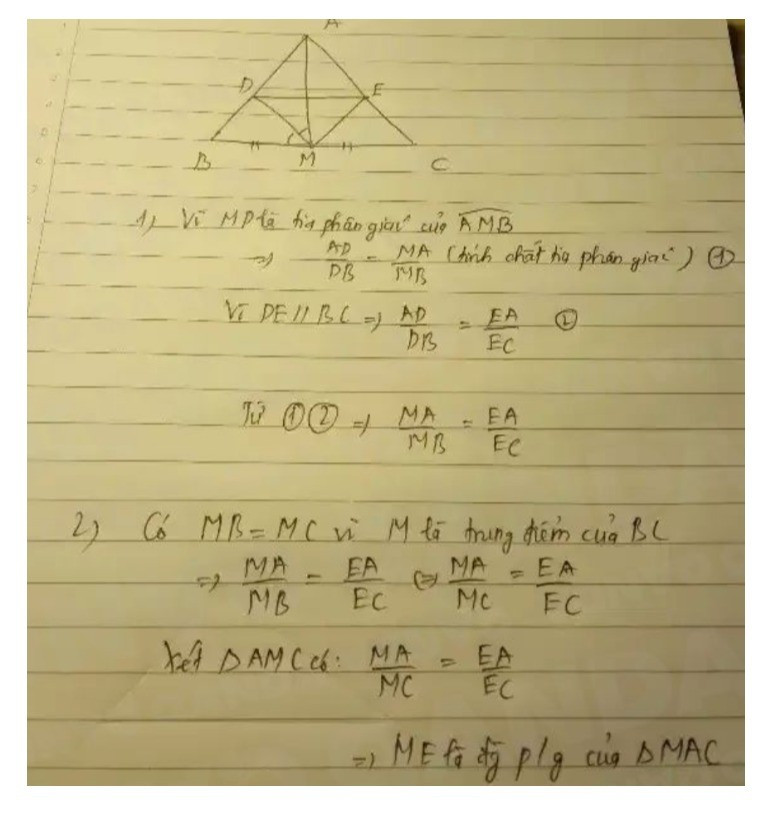 A
D E
B M C
1) Vì MD là tia phân giác của AMB
=> AD/DB = MA/MB (tính chất tia phân giác) ①
Vì DE // BC => AD/DB = EA/EC ②
Từ ①② => MA/MB = EA/EC
2) Có MB = MC vì M là trung điểm của BC
=> MA/MB = EA/EC <=> MA/MC = EA/EC
Xét ΔAMC có: MA/MC = EA/EC
=> ME là đg p/g của ΔMAC